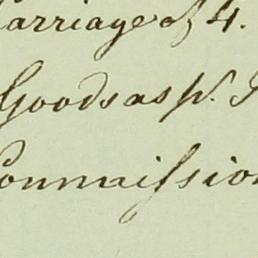 Carriage of 4.
Goods as pr. I
Conmaission